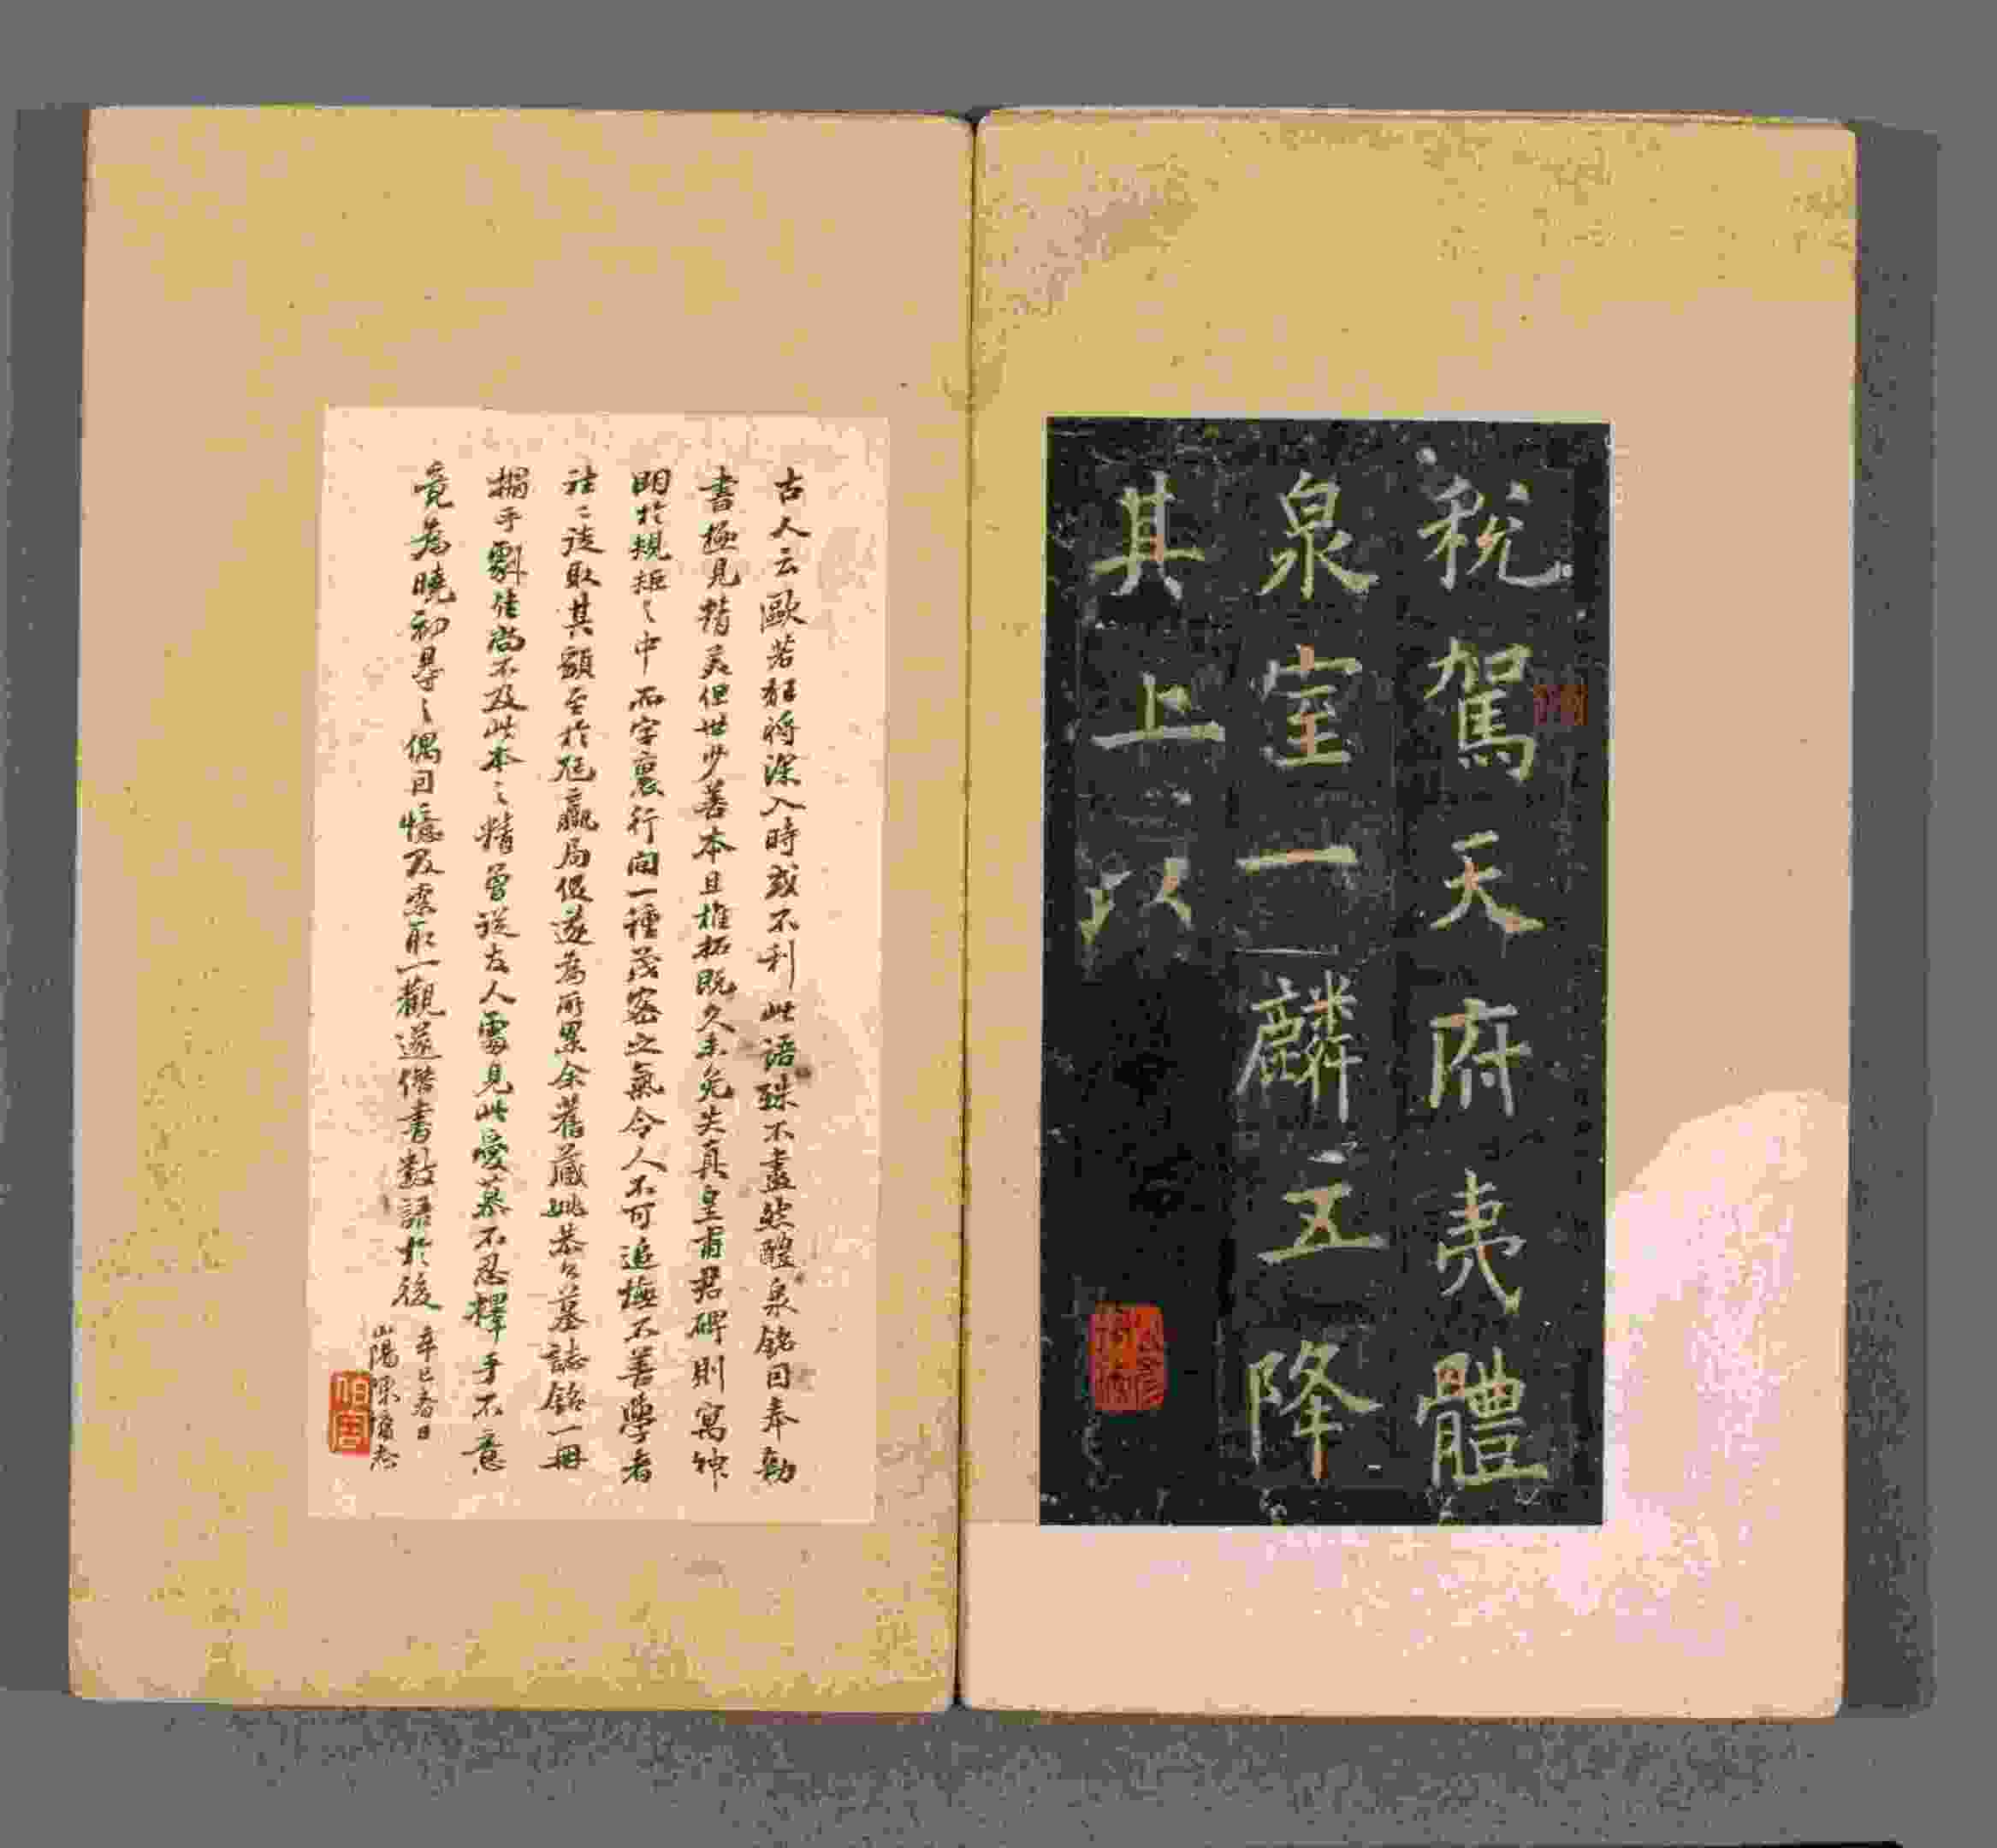 税駕天府夷體
泉室一麟五降
其上以
古人云歐若狂將深入時或不利此語殊不盡然醴泉銘曰奉勅
書極見精采但世少善本且椎拓既久未免失真皇甫君碑則寓神
明於規矩之中而字裏行間一種茂密之氣令人不可追摭不善學者
往々徒取其額至於尫羸局促遂為所累余舊藏姚恭公墓誌銘一冊
搨手劉佳尚不及此本之精曾從友人處見此愛慕不忍釋手不意
竟為曉初易之偶回憶及索取一觀遂僭書數語於後
辛巳春日
山陽陳
伯周